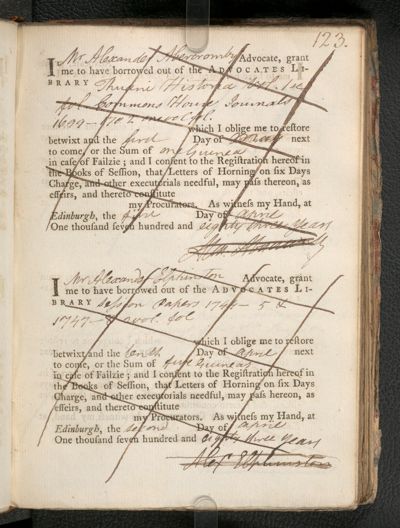 123.
I Mr Alexander Abercromby Advocate, grant
me to have borrowed out of the ADVOCATES LI-
BRARY Thuani Historia
vol. Commons House Journals
1699–1702
which I oblige me to restore
betwixt and the first Day of next
to come, or the Sum of one Guinea
in case of Failzie; and I consent to the Registration hereof in
the Books of Session, that Letters of Horning on six Days
Charge, and other executorials needful, may pass thereon, as
effeirs, and thereto constitute
my Procurators. As witness my Hand, at
Edinburgh, the first Day of April
One thousand seven hundred and eighty three years
I Mr Alexander Elphinston Advocate, grant
me to have borrowed out of the ADVOCATES LI-
BRARY Session Papers 1744–5 &
1747– vol. fol
which I oblige me to restore
betwixt and the tenth Day of April next
to come, or the Sum of five Guineas
in case of Failzie; and I consent to the Registration hereof in
the Books of Session, that Letters of Horning on six Days
Charge, and other executorials needful, may pass hereon, as
effeirs, and thereto constitute
my Procurators. As witness my Hand, at
Edinburgh, the second Day of April
One thousand seven hundred and eighty three years
Alex Elphinston